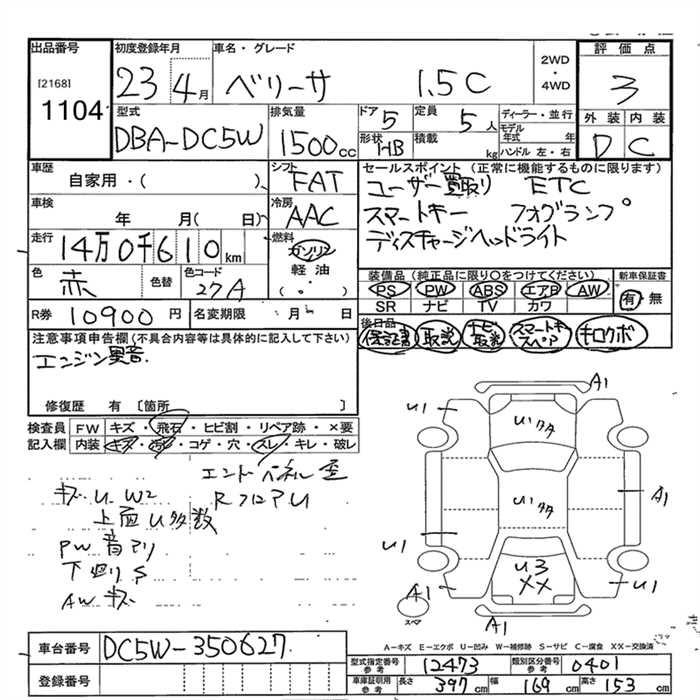 出品番号
[2168]
1104
初度登録年月
23 4月
車名・グレード
ベリーサ 1.5C
2WD
・
4WD
評価点
3
外装 内装
D C
型式
DBA-DC5W
排気量
1500cc
ドア 5
定員 5人
形状 HB
積載 kg
ディーラー・並行
モデル年式 年
ハンドル 左・右
車歴
自家用・( )
シフト
FAT
車検
年 月( 日)
冷房
AAC
走行
14万0千610km
燃料
ガソリン
軽油
( 。 )
色
赤
色替
色コード
27A
R券 10900円
名変期限 月 日
セールスポイント(正常に機能するものに限ります)
ユーザー買取り ETC
スマートキー フォグランプ
ディスチャージヘッドライト
装備品(純正品に限り〇をつけてください)
PS PW ABS エアB AW
SR ナビ TV カワ
新車保証書
有・無
後日品
保証書 取説 ナビ取説 スマートキースペア キロクボ
注意事項申告欄(不具合内容等は具体的に記入して下さい)
エンジン異音.
修復歴 有 [箇所 ]
検査員記入欄
FW キズ・飛石・ヒビ割・リペア跡・×要
内装 キズ・汚れ・コゲ・穴・スレ・キレ・破レ
エンドパネル歪
キズU W2 RフロアU
上面U多数
PW音アリ
下廻りS
AWキズ
A1
U1
U1多
A1
U1多
U1
U3
XX
A1
U1
スペア
A1
A-キズ E-エクボ U-凹み W-補修跡 S-サビ C-腐食 XX-交換済
車台番号 DC5W-350627
登録番号
型式指定番号参考 12473
類別区分番号参考 0401
車庫証明用参考 長さ 397cm 幅 169cm 高さ 153cm